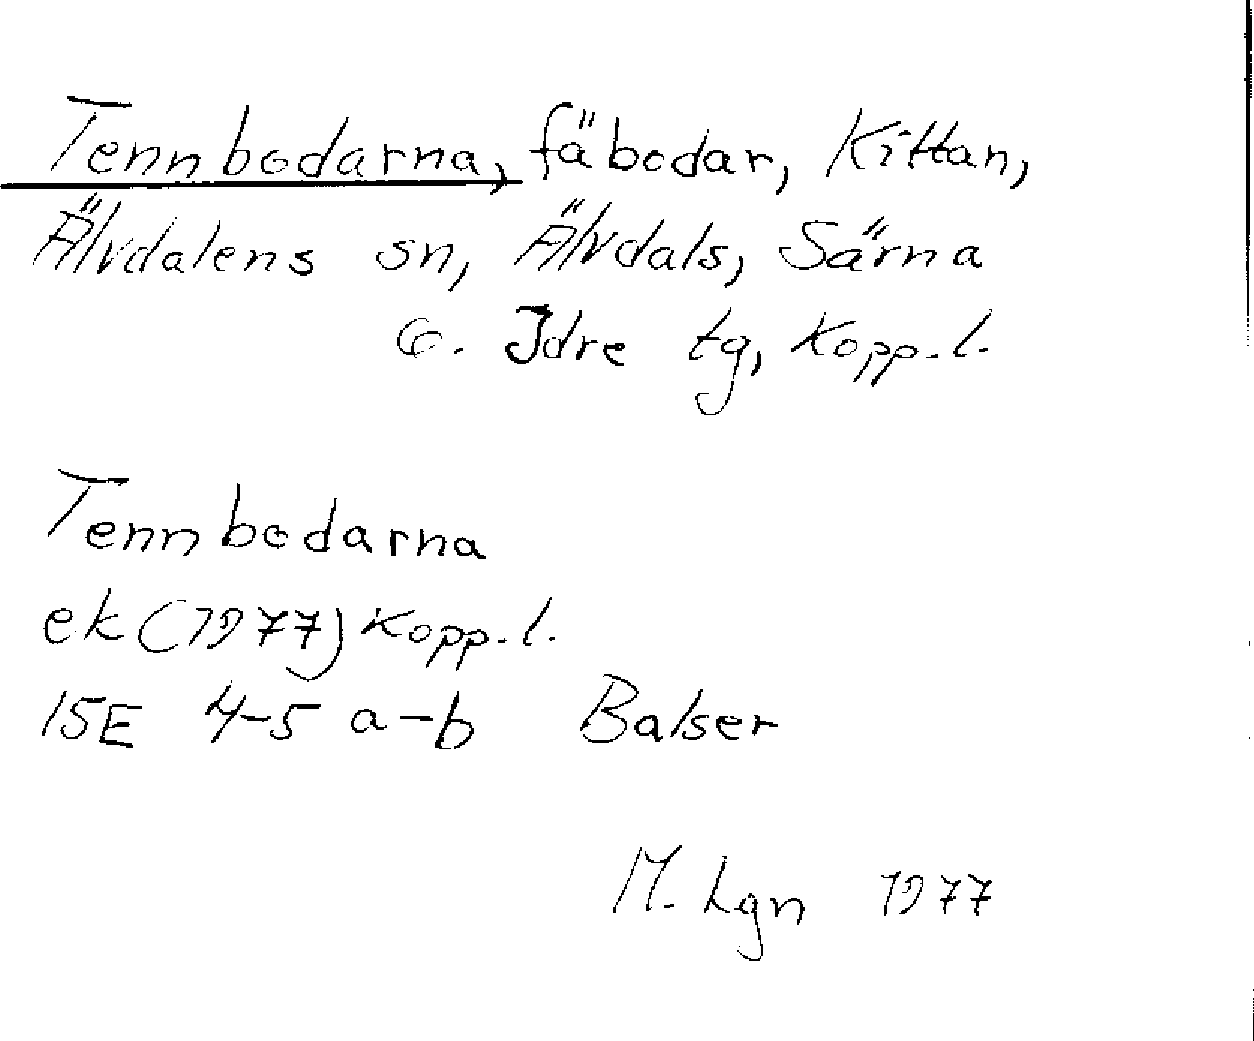 Tennbodarna, fäbodar, Kittan,
Älvdalens sn, Älvdals, Särna
o. Idre tg, Kopp. l.
Tennbodarna
ek (1977) Kopp. l.
15E 4-5 a-b Balser
M. Lgn 1977